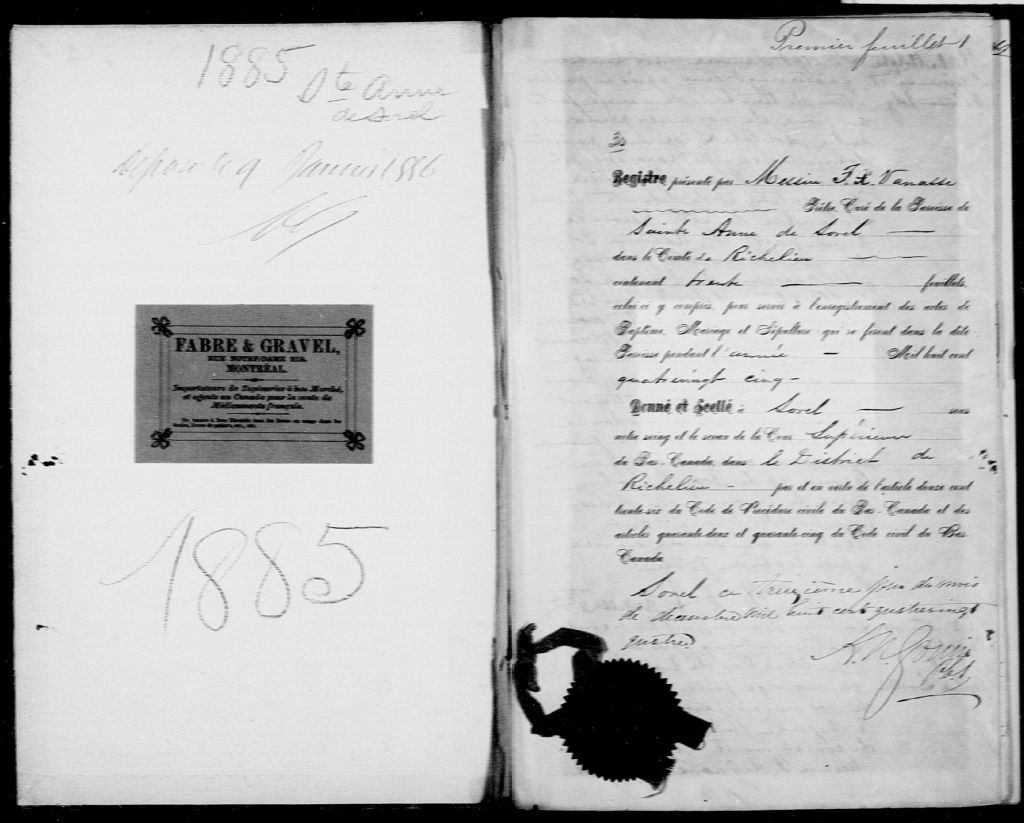 1885
Ste Anne
de Sorel
Déposé le 9 Janvier 1886
FABRE & GRAVEL,
RUE NOTRE-DAME 219.
MONTRÉAL.
Importateurs de Tapisseries à bon Marché,
et agents au Canada pour la vente de
Médicaments français.
1885
Premier feuillet 1
Registre présenté par Messire F. X. Vanasse
Prêtre, Curé de la Paroisse de
Sainte Anne de Sorel
dans le Comté de Richelieu
contenant trente feuillets,
celui-ci y compris, pour servir à l'enregistrement des actes de
Baptême, Mariage et Sépulture qui se feront dans la dite
Paroisse pendant l'année Mil huit cent
quatrevingt cinq -
Donné et Scellé à Sorel sous
notre seing et le sceau de la Cour Supérieure
du Bas-Canada, dans le District de
Richelieu - par et en vertu de l'article douze cent
trente-six du Code de Procédure civile du Bas-Canada et des
articles quarante-deux et quarante-cinq du Code civil du Bas
Canada
Sorel ce treizième jour du mois
de décembre mil huit cent quatrevingt
quatre.